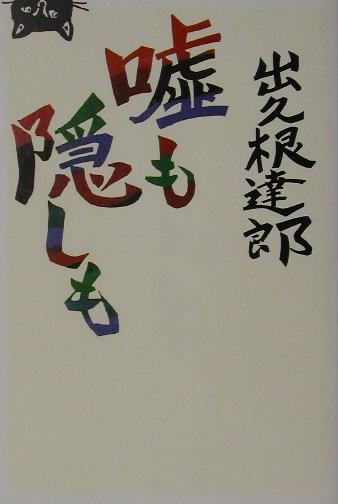 出久根達郎
嘘も
隠しも